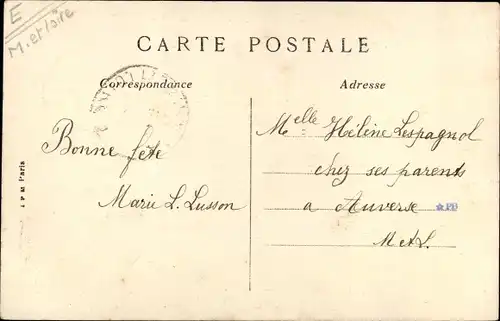 E
M. et loire
CARTE POSTALE
Correspondance
Adresse
Bonne fête
Marie L. Lusson
Melle Hélène Lespagnol
chez ses parents
a Auverse
M et L.